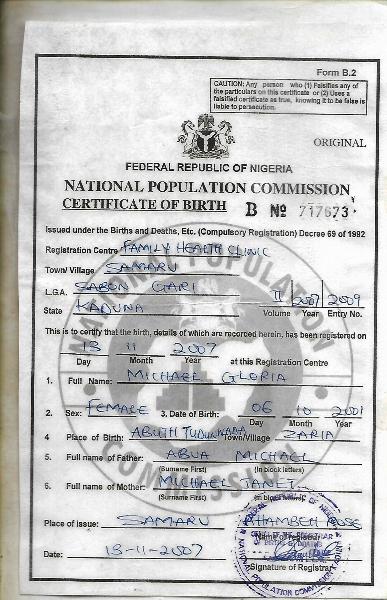 Form B.2
CAUTION: Any person who (1) Falsifies any of
the particulars on this certificate or (2) Uses a
falsified certificate as true, knowing it to be false is
liable to persecution.
ORIGINAL
FEDERAL REPUBLIC OF NIGERIA
NATIONAL POPULATION COMMISSION
CERTIFICATE OF BIRTH B No 717673
Issued under the Births and Deaths, Etc. (Compulsory Registration) Decree 69 of 1992
Registration Centre FAMILY HEALTH CLINIC
Town/ Village SAMARU
L.G.A. SABON GARI II 2007 2009
State KADUNA Volume Year Entry No.
This is to certify that the birth, details of which are recorded herein, has been registered on
13 11 2007
Day Month Year at this Registration Centre
1. Full Name: MICHAEL GLORIA
2. Sex: FEMALE 3. Date of Birth: 06 10 2001
Day Month Year
4 Place of Birth: Town/Village ZARIA
5. Full name of Father: ABUA MICHAEL
(Surname First) (In block letters)
6. Full name of Mother: MICHAEL JANET
(Surname First) (In block letters)
Place of Issue: SAMARU
Name of registrar
Date: 13-11-2007
Signature of Registrar
NATIONAL POPULATION COMMISSION